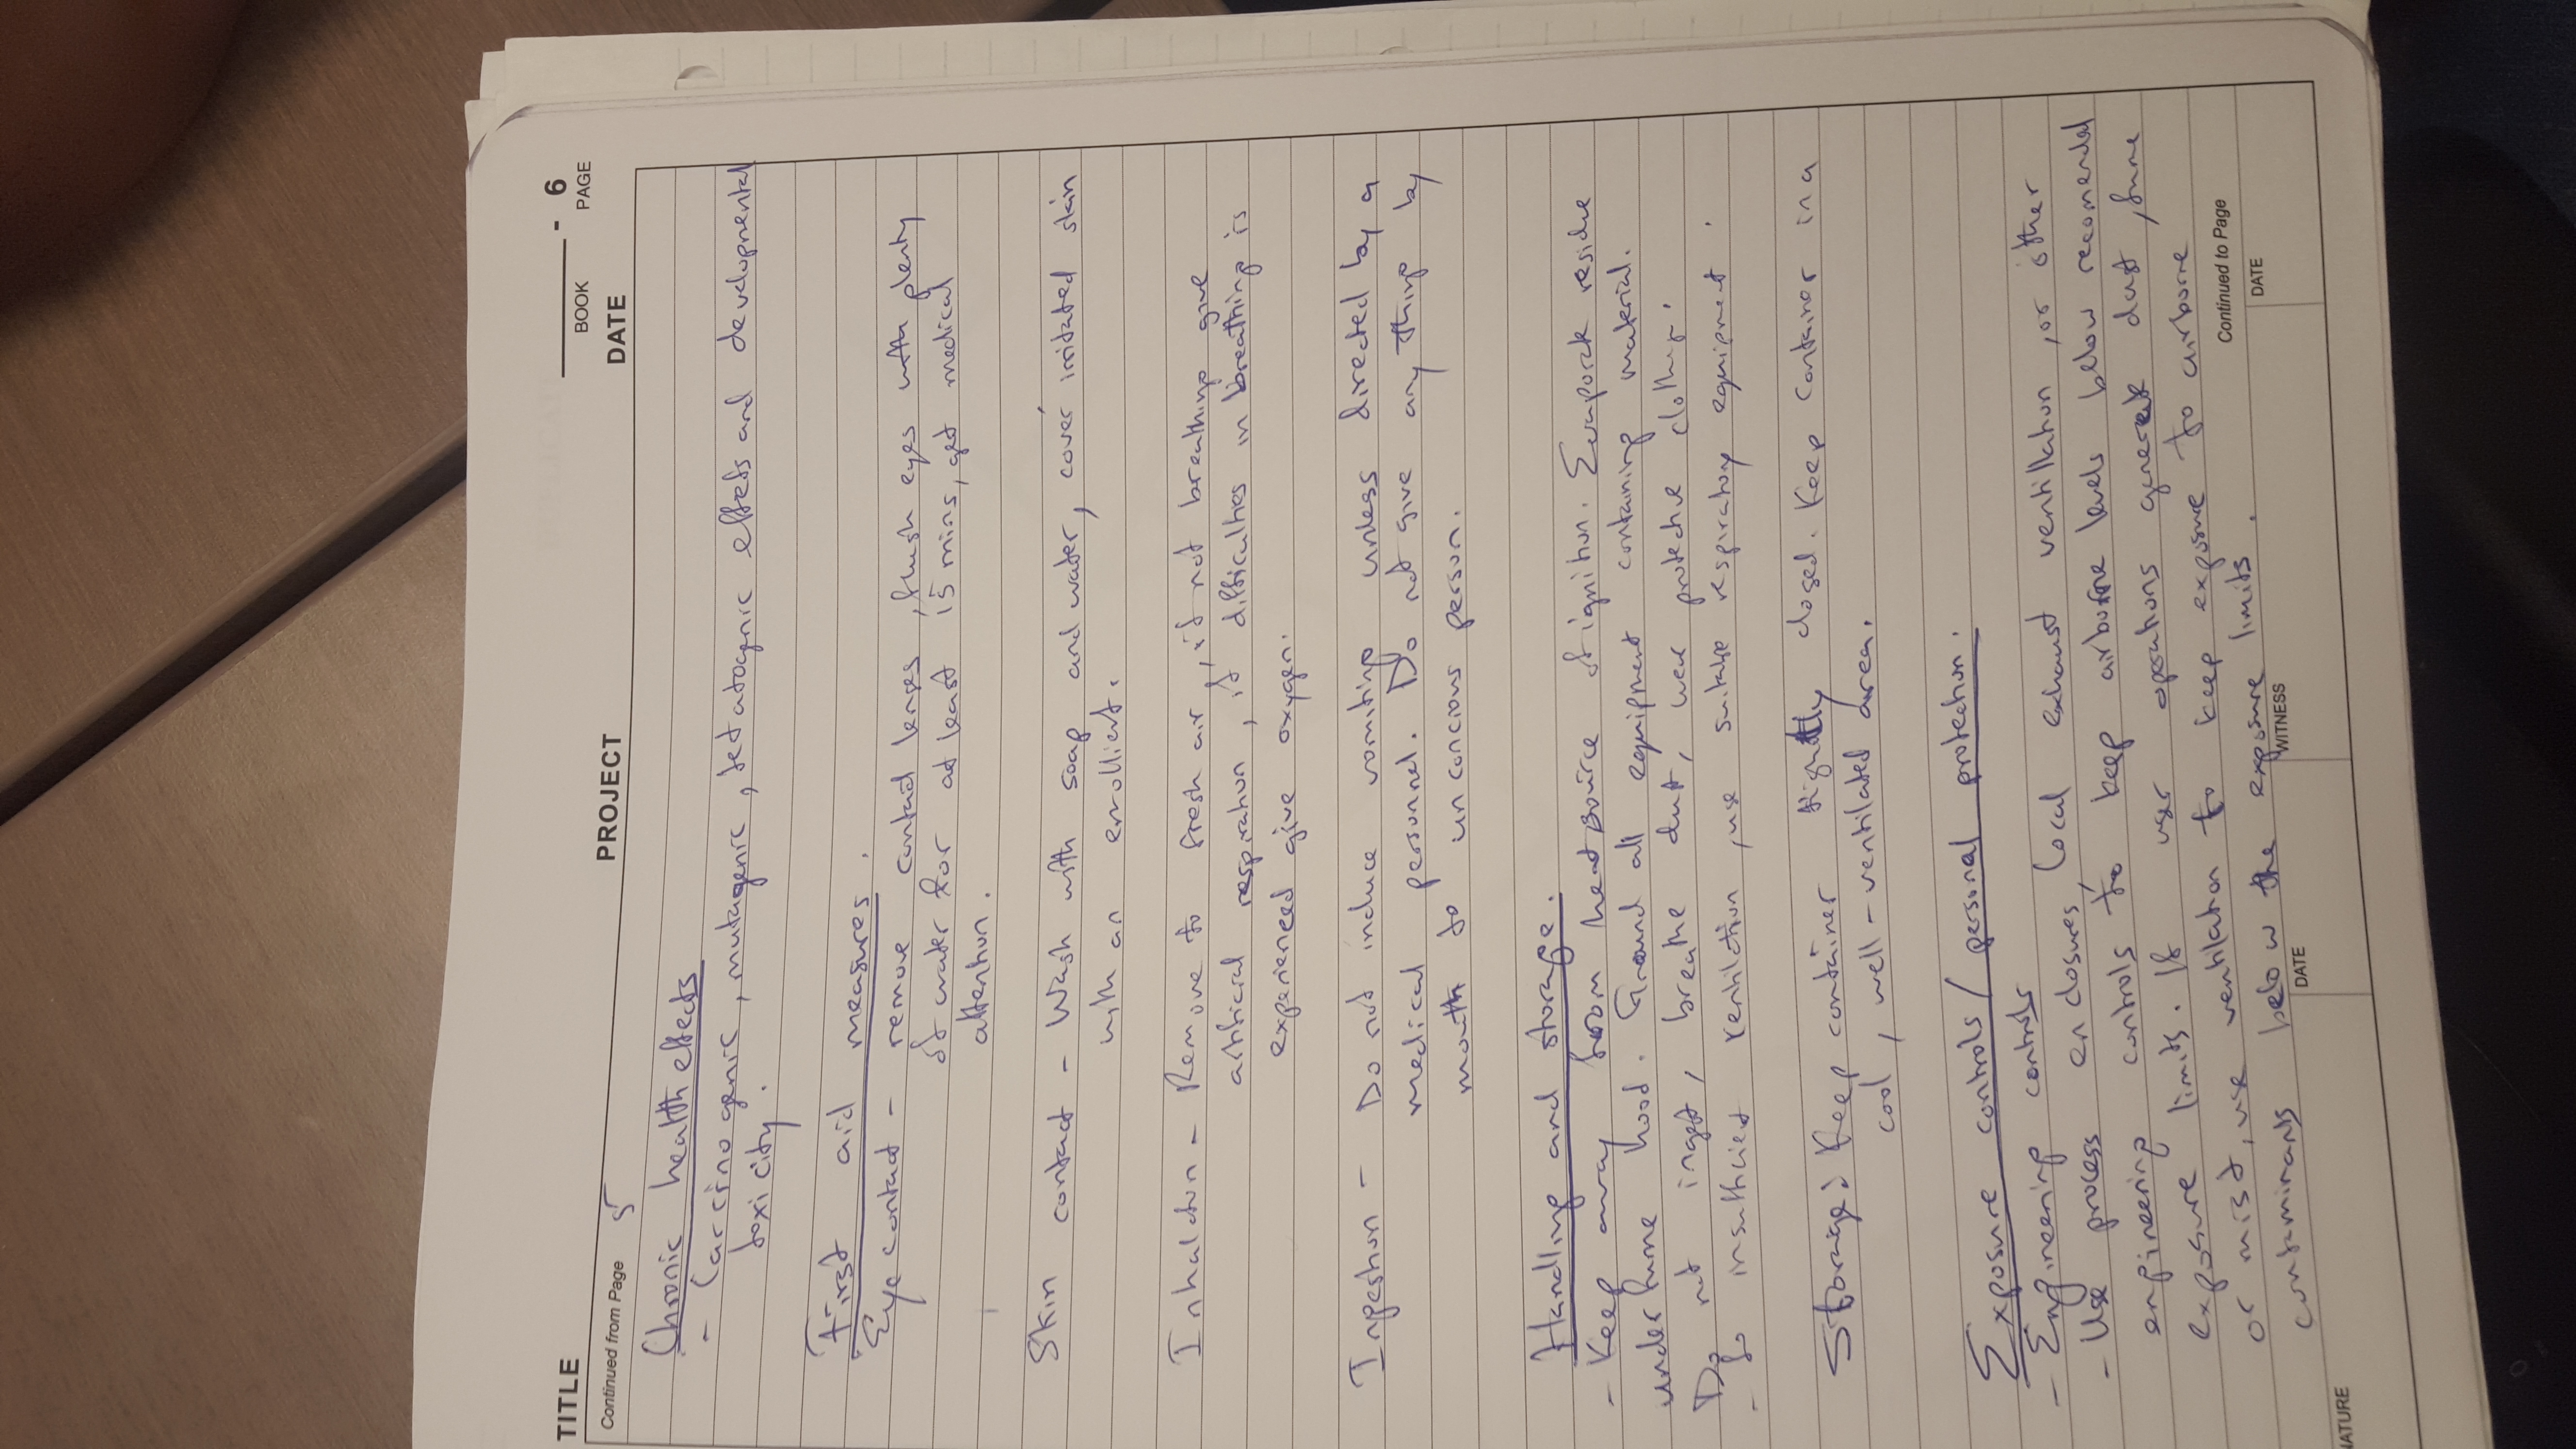 BOOK - 6 PAGE
TITLE PROJECT DATE
Continued from Page 5
Chronic health effects
- Carcinogenic, mutagenic, tetatogenic effets and developmental
toxicity.
First aid measures.
Eye contact - remove contact lenses, flush eyes with plenty
of water for at least 15 mins, get medical
attention.
Skin contact - Wash with soap and water, cover irritated skin
with an emollient.
Inhalation - Remove to fresh air, if not breathing give
artificial respiration, if difficulties in breathing is
experienced give oxygen.
Ingestion - Do not induce vomiting unless directed by a
medical personnel. Do not give any thing by
mouth to unconcious person.
Handling and storage.
- Keep away from heat source of ignition. Evaporate residue
under fume hood. Ground all equipment containing material.
Do not ingest, breathe dust, wear protective clothing.
- In insufficient ventilation, use suitable respiratory equipment.
Storage: Keep container tightly closed. Keep container in a
cool, well-ventilated area.
Exposure controls / personal protection.
- Engineering controls
- Use process enclosures, local exhaust ventillation, or other
engineering controls to keep airborne levels below recomended
exposure limits. If user operations generate dust, fume
or mist, use ventilation to keep exposure to airborne
contaminants below the exposure limits.
Continued to Page
DATE WITNESS DATE
NATURE